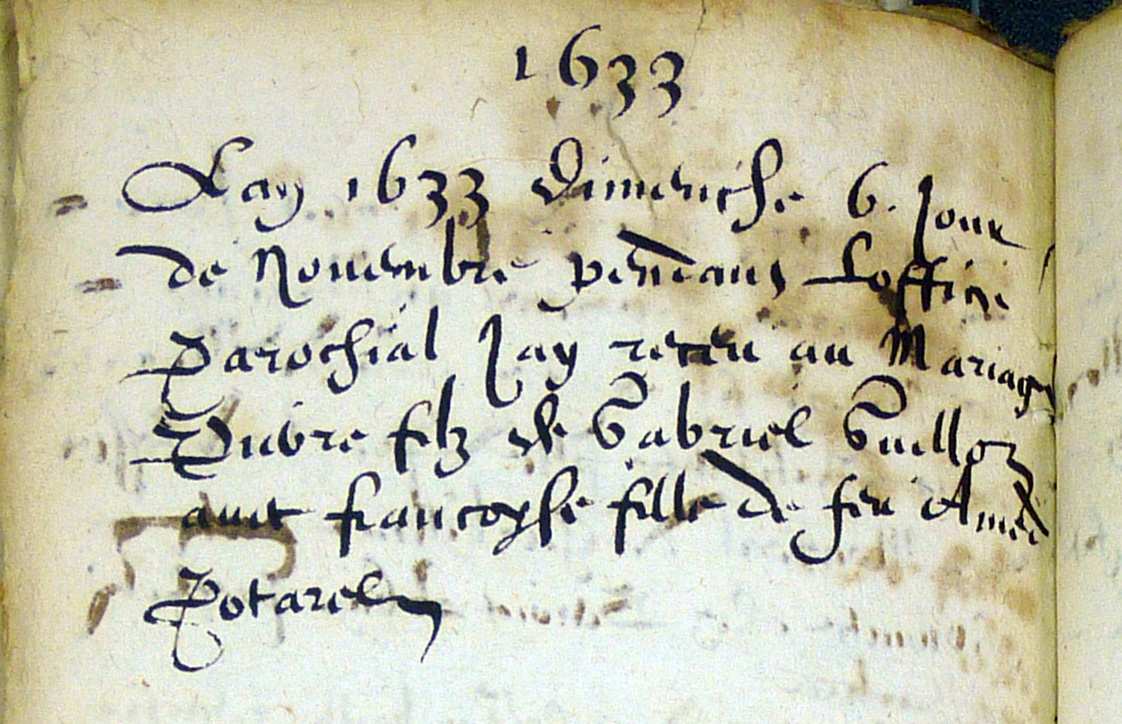 1633
Lan 1633 dimenche 6. Jour
de Nouembre pendant Loffice
Parochial Jay receu au Mariage
Pierre filz de Gabriel Guilloz
auec francoyse fille de feu Amed
Potarel